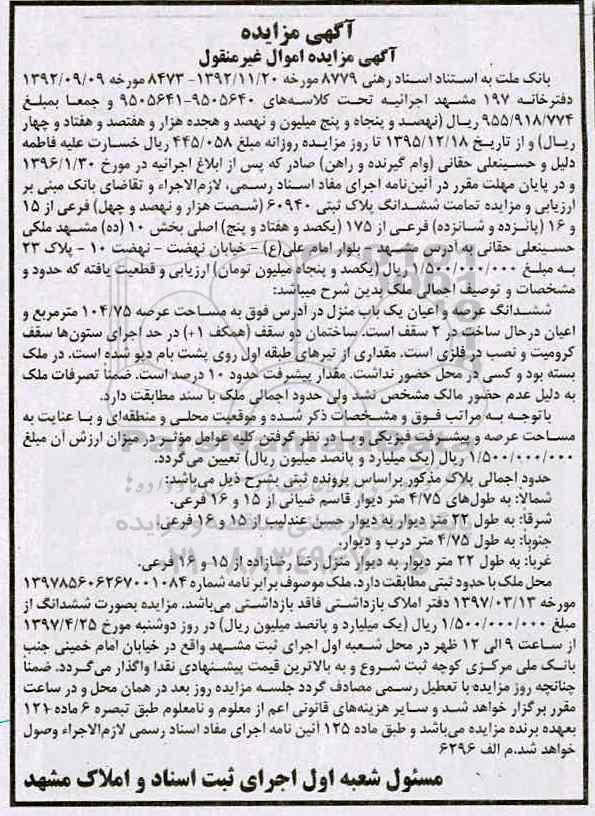 آگهی مزایده
آگهی مزایده اموال غیر منقول
بانک ملت به استناد اسناد رهنی ۸۷۷۹ مورخه ۱۳۹۲/۱۱/۲۰- ۸۴۷۳ مورخه ۱۳۹۲/۰۹/۰۹
دفترخانه ۱۹۷ مشهد اجرائیه تحت کلاسه‌های ۹۵۰۵۶۴۰-۹۵۰۵۶۴۱ و جمعا بمبلغ
۹۵۵/۹۱۸/۷۷۴ ریال (نهصد و پنجاه و پنج میلیون و نهصد و هجده هزار و هفتصد و هفتاد و چهار
ریال) و از تاریخ ۱۳۹۵/۱۲/۱۸ تا روز مزایده روزانه مبلغ ۴۴۵/۰۵۸ ریال خسارت علیه فاطمه
دلیل و حسینعلی حقانی (وام گیرنده و راهن) صادر که پس از ابلاغ اجرائیه در مورخ ۱۳۹۶/۱/۳۰
و در پایان مهلت مقرر در آئین‌نامه اجرای مفاد اسناد رسمی، لازم‌الاجراء و تقاضای بانک مبنی بر
ارزیابی و مزایده تمامت ششدانگ پلاک ثبتی ۶۰۹۴۰ (شصت هزار و نهصد و چهل) فرعی از ۱۵
و ۱۶ (پانزده و شانزده) فرعی از ۱۷۵ (یکصد و هفتاد و پنج) اصلی بخش ۱۰ (ده) مشهد ملکی
حسینعلی حقانی به آدرس مشهد - بلوار امام علی(ع) - خیابان نهضت - نهضت ۱۰ - پلاک ۲۳
به مبلغ ۱/۵۰۰/۰۰۰/۰۰۰ ریال (یکصد و پنجاه میلیون تومان) ارزیابی و قطعیت یافته که حدود و
مشخصات و توصیف اجمالی ملک بدین شرح میباشد:
ششدانگ عرصه و اعیان یک باب منزل در آدرس فوق به مساحت عرصه ۱۰۴/۷۵ مترمربع و
اعیان درحال ساخت در ۲ سقف است. ساختمان دو سقف (همکف ۱+) در حد اجرای ستون‌ها سقف
کرومیت و نصب در فلزی است. مقداری از تیرهای طبقه اول روی پشت بام دپو شده است. در ملک
بسته بود و کسی در محل حضور نداشت. مقدار پیشرفت حدود ۱۰ درصد است. ضمنا تصرفات ملک
به دلیل عدم حضور مالک مشخص نشد ولی حدود اجمالی ملک با سند مطابقت دارد.
با توجه به مراتب فوق و مشخصات ذکر شده و موقعیت محلی و منطقه‌ای و با عنایت به
مساحت عرصه و پیشرفت فیزیکی و با در نظر گرفتن کلیه عوامل مؤثر در میزان ارزش آن مبلغ
۱/۵۰۰/۰۰۰/۰۰۰ ریال (یک میلیارد و پانصد میلیون ریال) تعیین می‌گردد.
حدود اجمالی پلاک مذکور براساس پرونده ثبتی بشرح ذیل می‌باشد:
شمالا: به طول‌های ۴/۷۵ متر دیوار قاسم ضیائی از ۱۵ و ۱۶ فرعی.
شرقا: به طول ۲۲ متر دیوار به دیوار حسن عندلیب از ۱۵ و ۱۶ فرعی.
جنوبا: به طول ۴/۷۵ متر درب و دیوار.
غربا: به طول ۲۲ متر دیوار به دیوار منزل رضا رضازاده از ۱۵ و ۱۶ فرعی.
محل ملک با حدود ثبتی مطابقت دارد. ملک موصوف برابر نامه شماره ۱۳۹۷۸۵۶۰۶۲۶۷۰۰۱۰۸۴
مورخه ۱۳۹۷/۰۳/۱۳ دفتر املاک بازداشتی فاقد بازداشتی می‌باشد. مزایده بصورت ششدانگ از
مبلغ ۱/۵۰۰/۰۰۰/۰۰۰ ریال (یک میلیارد و پانصد میلیون ریال) در روز دوشنبه مورخ ۱۳۹۷/۴/۲۵
از ساعت ۹ الی ۱۲ ظهر در محل شعبه اول اجرای ثبت مشهد واقع در خیابان امام خمینی جنب
بانک ملی مرکزی کوچه ثبت شروع و به بالاترین قیمت پیشنهادی نقدا واگذار می‌گردد. ضمنا
چنانچه روز مزایده با تعطیل رسمی مصادف گردد جلسه مزایده روز بعد در همان محل و در ساعت
مقرر برگزار خواهد شد و سایر هزینه‌های قانونی اعم از معلوم و نامعلوم طبق تبصره ۶ ماده ۱۲۱
بعهده برنده مزایده می‌باشد و طبق ماده ۱۲۵ آئین نامه اجرای مفاد اسناد رسمی لازم‌الاجراء وصول
خواهد شد.م الف ۶۲۹۶
مسئول شعبه اول اجرای ثبت اسناد و املاک مشهد